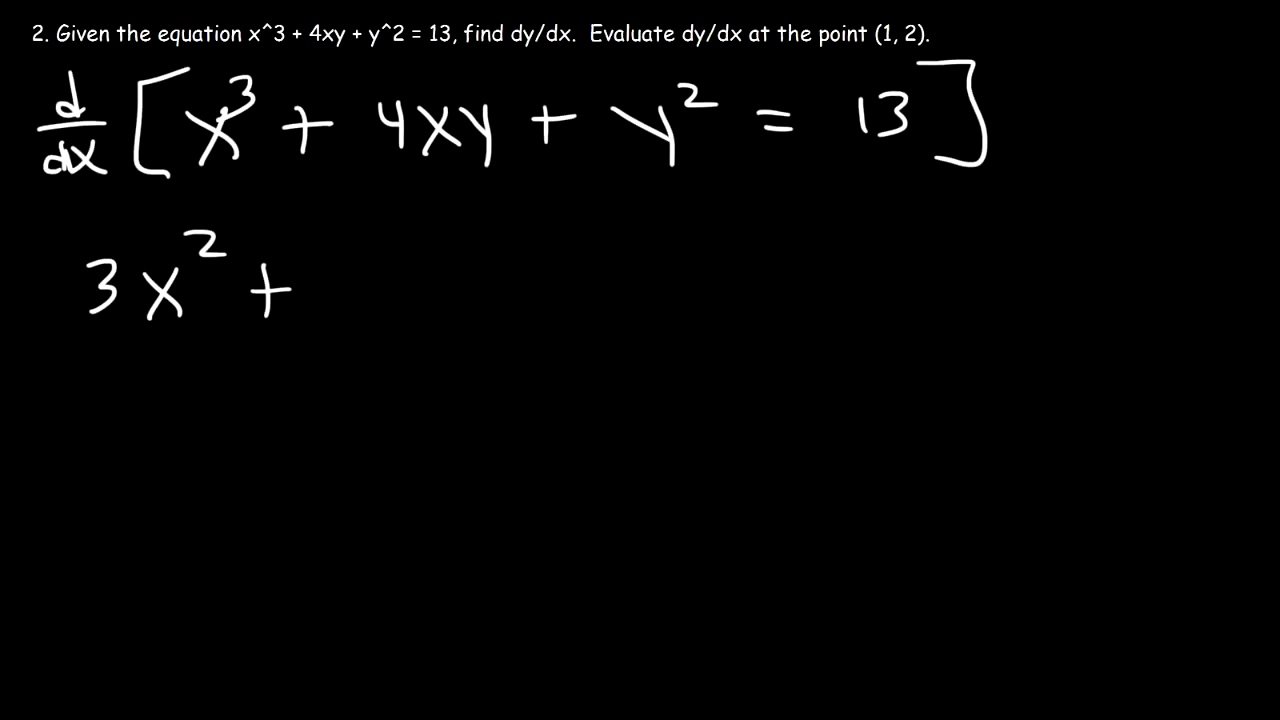 2. Given the equation x^3 + 4xy + y^2 = 13, find dy/dx. Evaluate dy/dx at the point (1, 2).
d/dx [x³ + 4xy + y² = 13]
3x² +